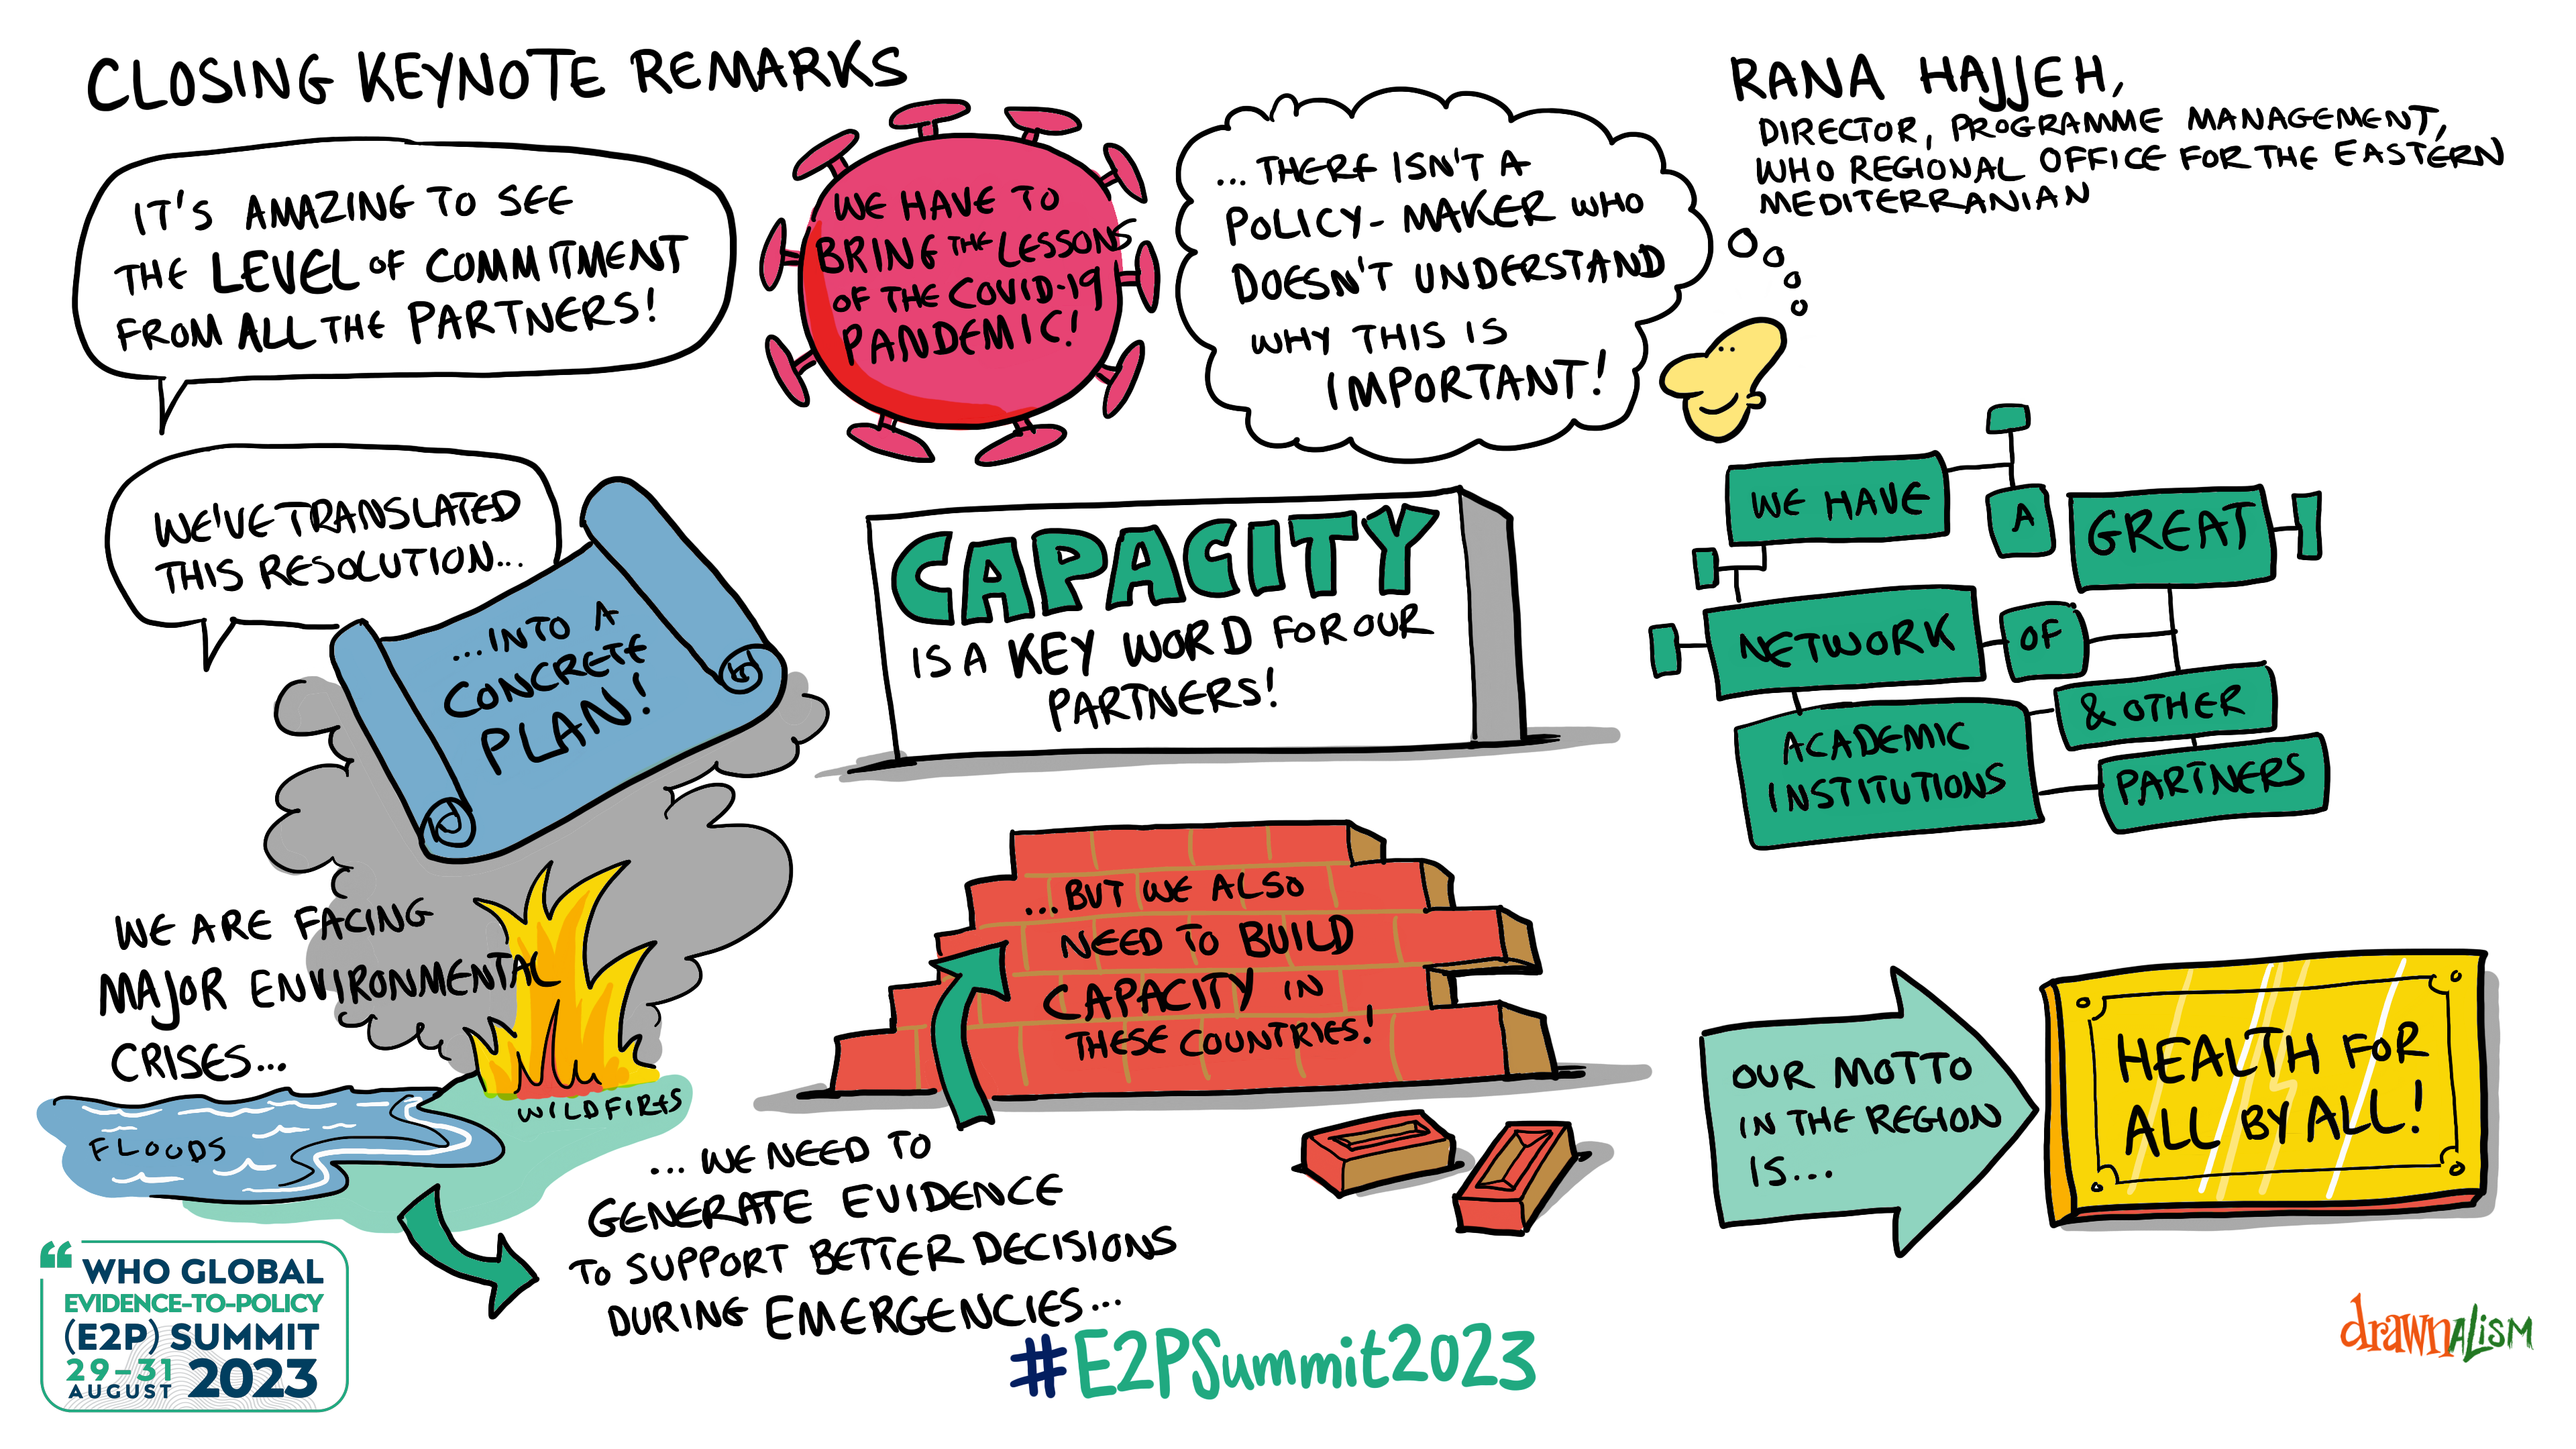 CLOSING KEYNOTE REMARKS
RANA HAJJEH,
DIRECTOR, PROGRAMME MANAGEMENT,
WHO REGIONAL OFFICE FOR THE EASTERN
MEDITERRANIAN
IT'S AMAZING TO SEE
THE LEVEL OF COMMITMENT
FROM ALL THE PARTNERS!
WE HAVE TO
BRING THE LESSONS
OF THE COVID-19
PANDEMIC!
...THERE ISN'T A
POLICY-MAKER WHO
DOESN'T UNDERSTAND
WHY THIS IS
IMPORTANT!
WE'VE TRANSLATED
THIS RESOLUTION...
...INTO A
CONCRETE
PLAN!
CAPACITY
IS A KEY WORD FOR OUR
PARTNERS!
WE HAVE
A
GREAT
NETWORK
OF
ACADEMIC
INSTITUTIONS
& OTHER
PARTNERS
WE ARE FACING
MAJOR ENVIRONMENTAL
CRISES...
FLOODS
WILDFIRES
...WE NEED TO
GENERATE EVIDENCE
TO SUPPORT BETTER DECISIONS
DURING EMERGENCIES...
...BUT WE ALSO
NEED TO BUILD
CAPACITY IN
THESE COUNTRIES!
OUR MOTTO
IN THE REGION
IS...
HEALTH FOR
ALL BY ALL!
“ WHO GLOBAL
EVIDENCE-TO-POLICY
(E2P) SUMMIT
29–31
AUGUST
2023
#E2PSummit2023
drawnALISM